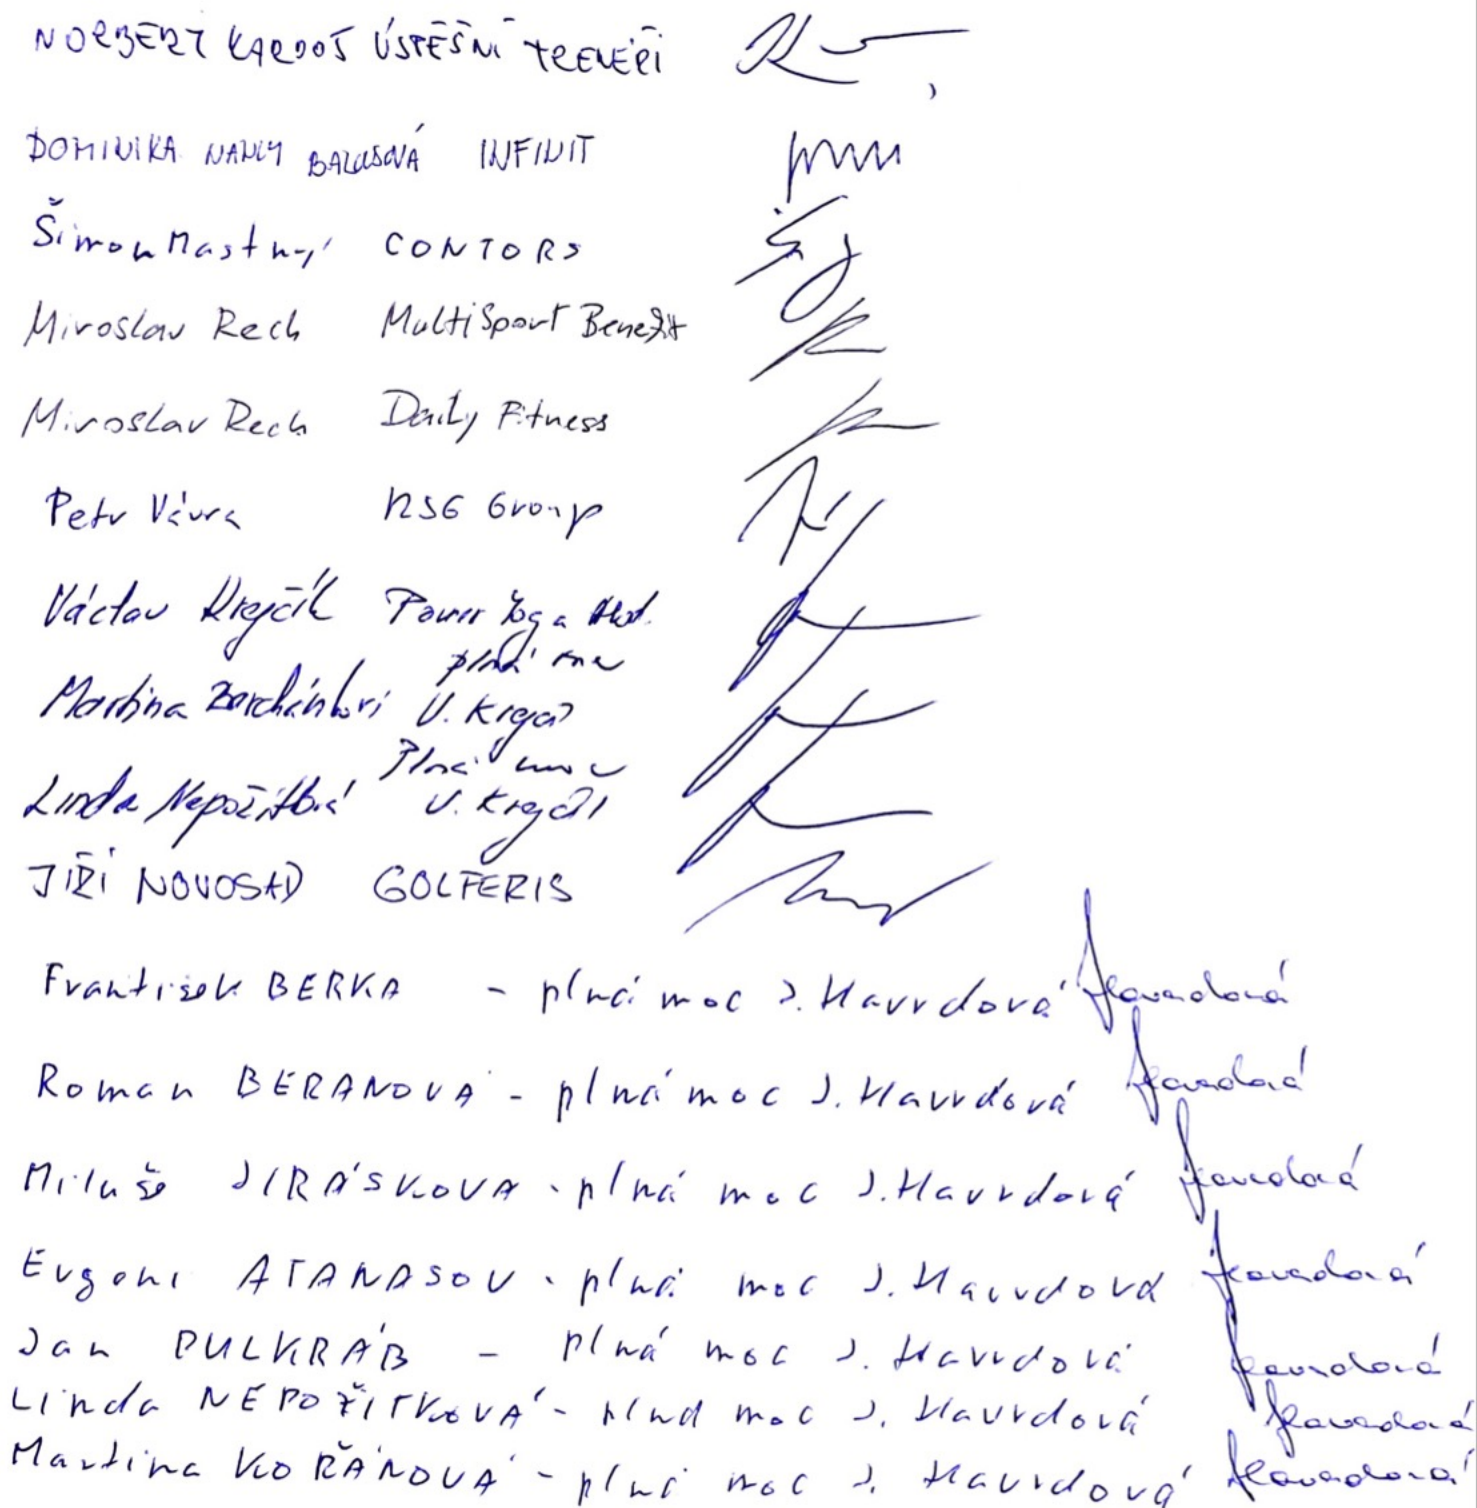 NORBERT KARDOŠ ÚSPĚŠNÍ TRENÉŘI
DOMINIKA NANCY BALUSOVÁ INFINIT
Šimon Mastný CONTORS
Miroslav Rech MultiSport Benefit
Miroslav Rech Daily Fitness
Petr Vávra RSG Group
Václav Krejčík Power Yoga
plná moc
Martina V. Krejčík
Plná moc
Linda Nepožitková V. Krejčík
JIŘÍ NOVOSAD GOLFERIS
František BERKA - plná moc J. Havrdová Havrdová
Roman BERANOVÁ - plná moc J. Havrdová Havrdová
Miluše JIRÁSKOVA - plná moc J. Havrdová Havrdová
Evgeni ATANASOV - plná moc J. Havrdová Havrdová
Jan PULKRÁB - plná moc J. Havrdová Havrdová
Linda NEPOŽITKOVÁ - plná moc J. Havrdová Havrdová
Martina KOŘÁNOVÁ - plná moc J. Havrdová Havrdová